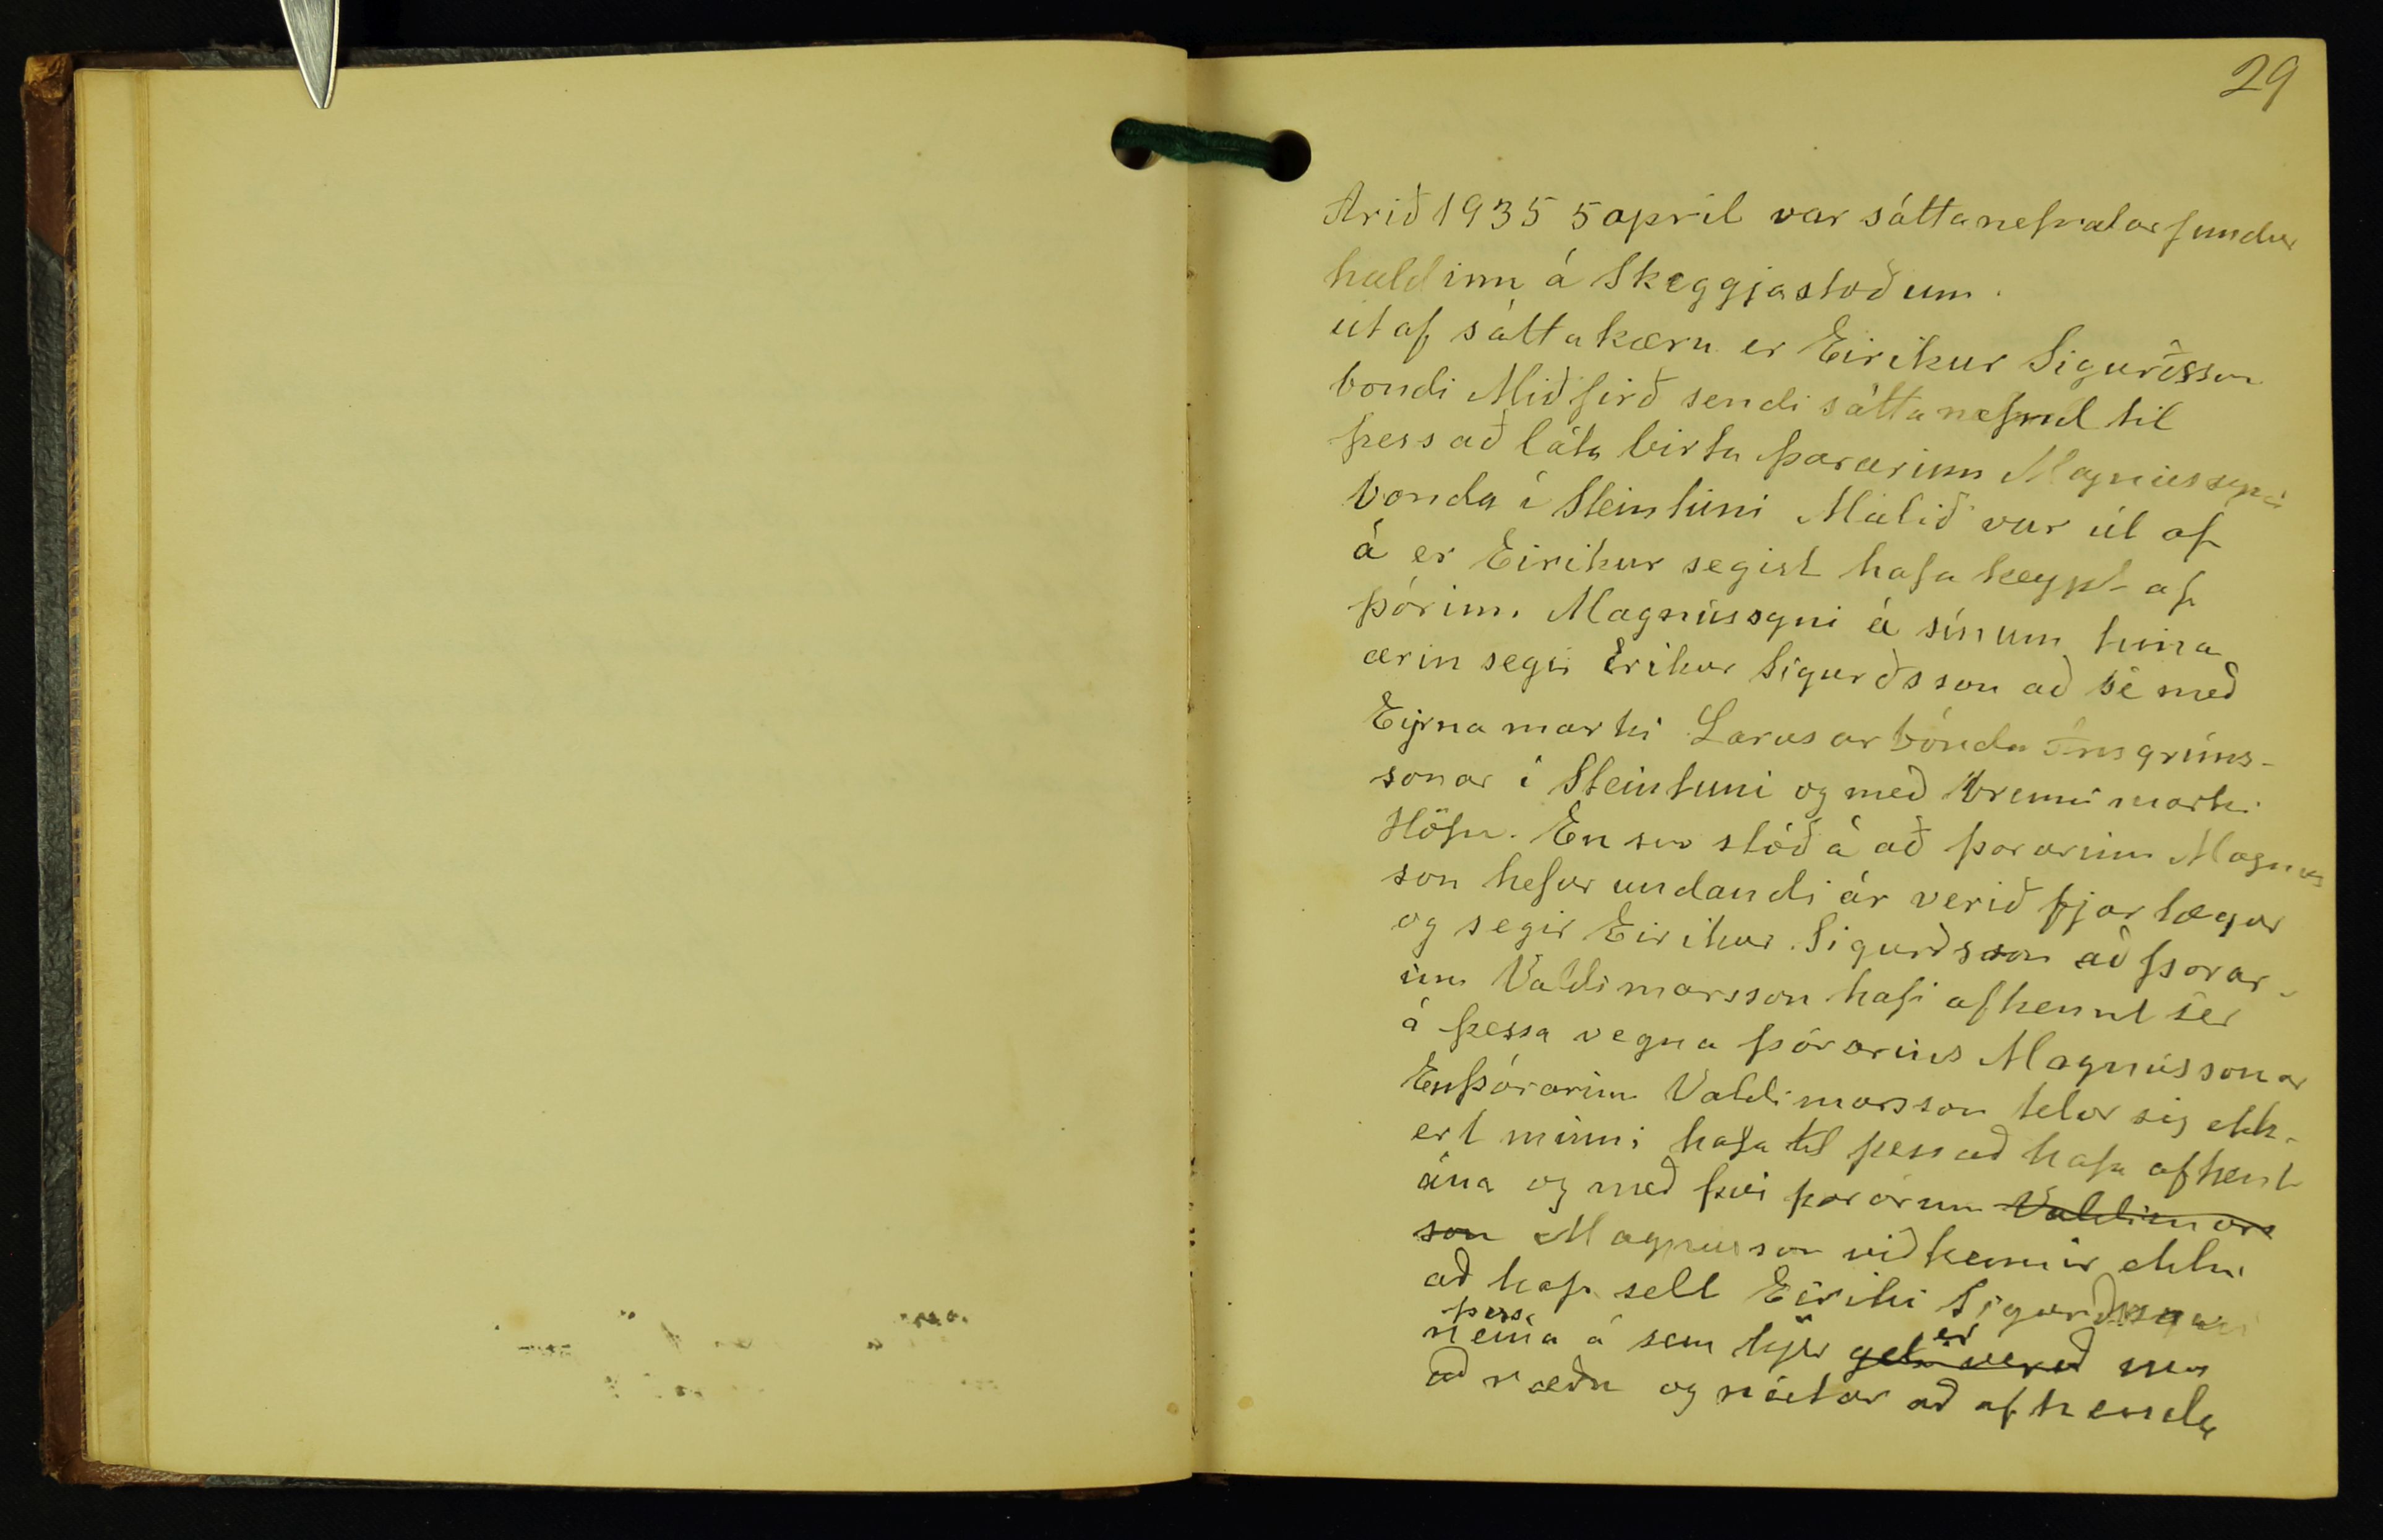 29
Arið 1935 5 april var sáttanefndarfundur
haldinn á Skeggjastoðum.
út af sáttakæru er Eirikur Sigurðsson
bondi Miðfirð sendi sáttanefnd til
þess að láta birta þorarinn Magnússyni
bonda í Steintúni Málið var út af
á er Eirikur segist hafa keypt af
Þórinn. Magnússyni á sínum tima
ærin segir Erikur Sigurðsson að sé með
Eyrnamarki Larusar bónda
sonar í Steintuni og með brennimarki
Höfn. En svo stóð á að þorarinn Magnus
son hefur undandi ár verið fjarlægur
og segir Eirikur Sigurðsson að þorar-
inn Valdimarsson hafi afhennt sér
á þessa vegna þórarins Magnússonar
En Þórarinn Valdimarsson telur sig ekk-
ert minni hafa til þess að hafa afhent
ána og með því þorarinn Valdimars
son Magnusson viðkennir ekki
að hafa sellt Eiriki Sigurðssyni
þessa
neina á sem hjer geta verið er um
að ræða og neitar að afhenda